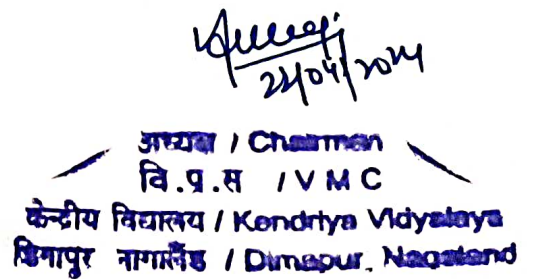 22/04/2024
अध्यक्ष / Chairman
वि.प्र.स / V M C
केन्द्रीय विद्यालय / Kendriya Vidyalaya
डिमापुर नागालैंड / Dimapur, Nagaland